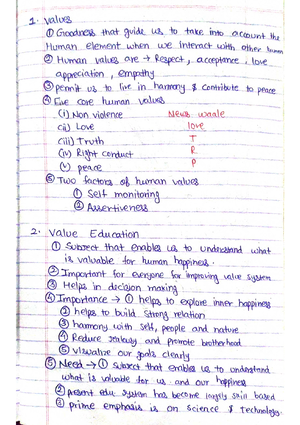 1. Values
① Goodness that guide us to take into account the
Human element when we interact with other human
② Human values are → Respect, acceptance, love
appreciation, empathy
③ permit us to live in harmony & contribute to peace
④ Five core human values
(i) Non violence News waale
(ii) Love love
(iii) Truth T
(iv) Right conduct R
(v) peace P
⑤ Two factors of human values
① Self monitoring
② Assertiveness
2. Value Education
① Subject that enables us to understand what
is valuable for human happiness.
② Important for everyone for improving value system
③ Helps in decision making
④ Importance → ① helps to explore inner happiness
② helps to build strong relation
③ harmony with self, people and nature
④ Reduce jealousy and promote brotherhood
⑤ visualize our goals clearly
⑤ Need → ① subject that enables us to understand
what is valuable for us and our happiness
② present edu system has become largely skill based
③ prime emphasis is on Science & Technology.